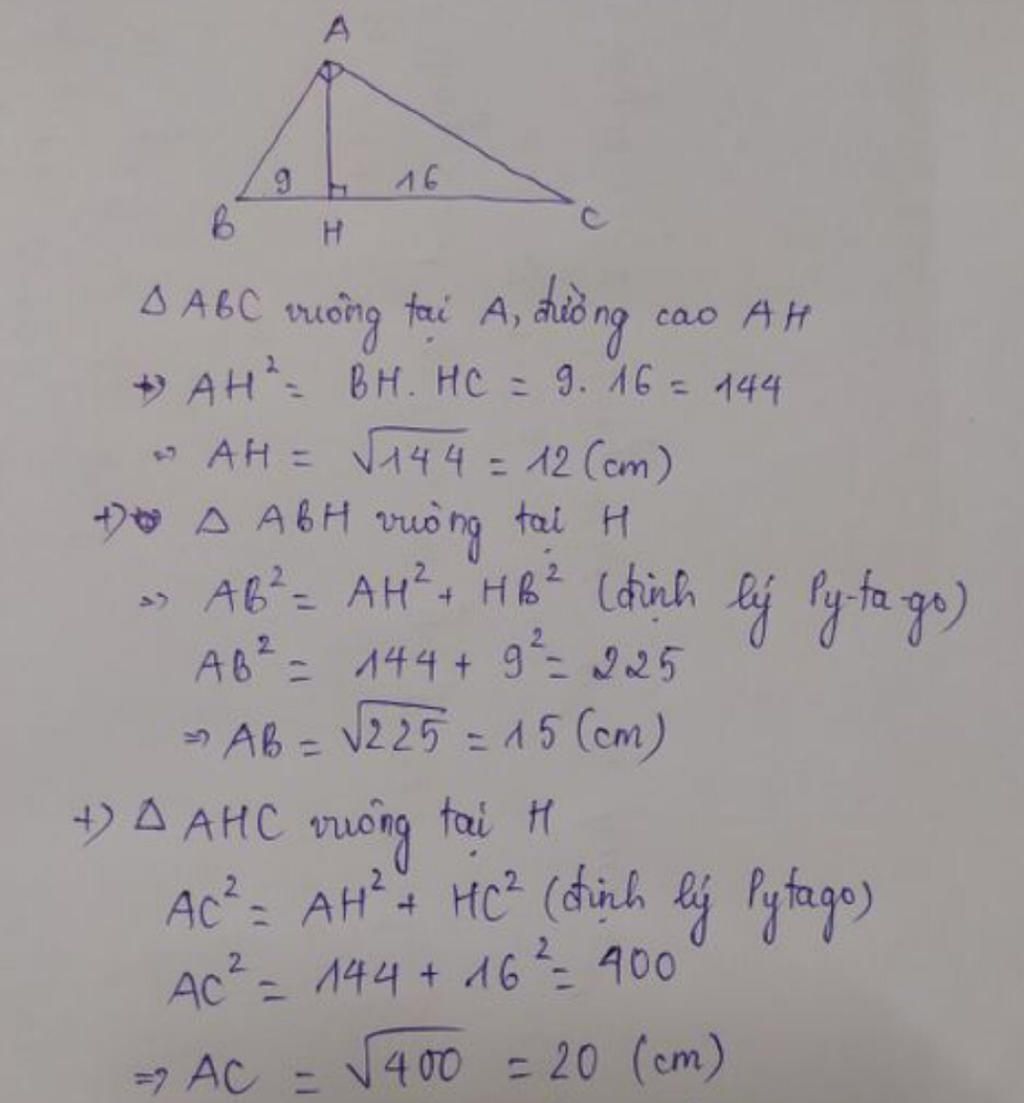 A
9 16
B H C
Δ ABC vuông tại A, đường cao AH
+) AH² = BH . HC = 9 . 16 = 144
=> AH = √144 = 12 (cm)
+) Δ ABH vuông tại H
=> AB² = AH² + HB² (định lý Py-ta-go)
AB² = 144 + 9² = 225
=> AB = √225 = 15 (cm)
+) Δ AHC vuông tại H
AC² = AH² + HC² (định lý Pytago)
AC² = 144 + 16² = 400
=> AC = √400 = 20 (cm)